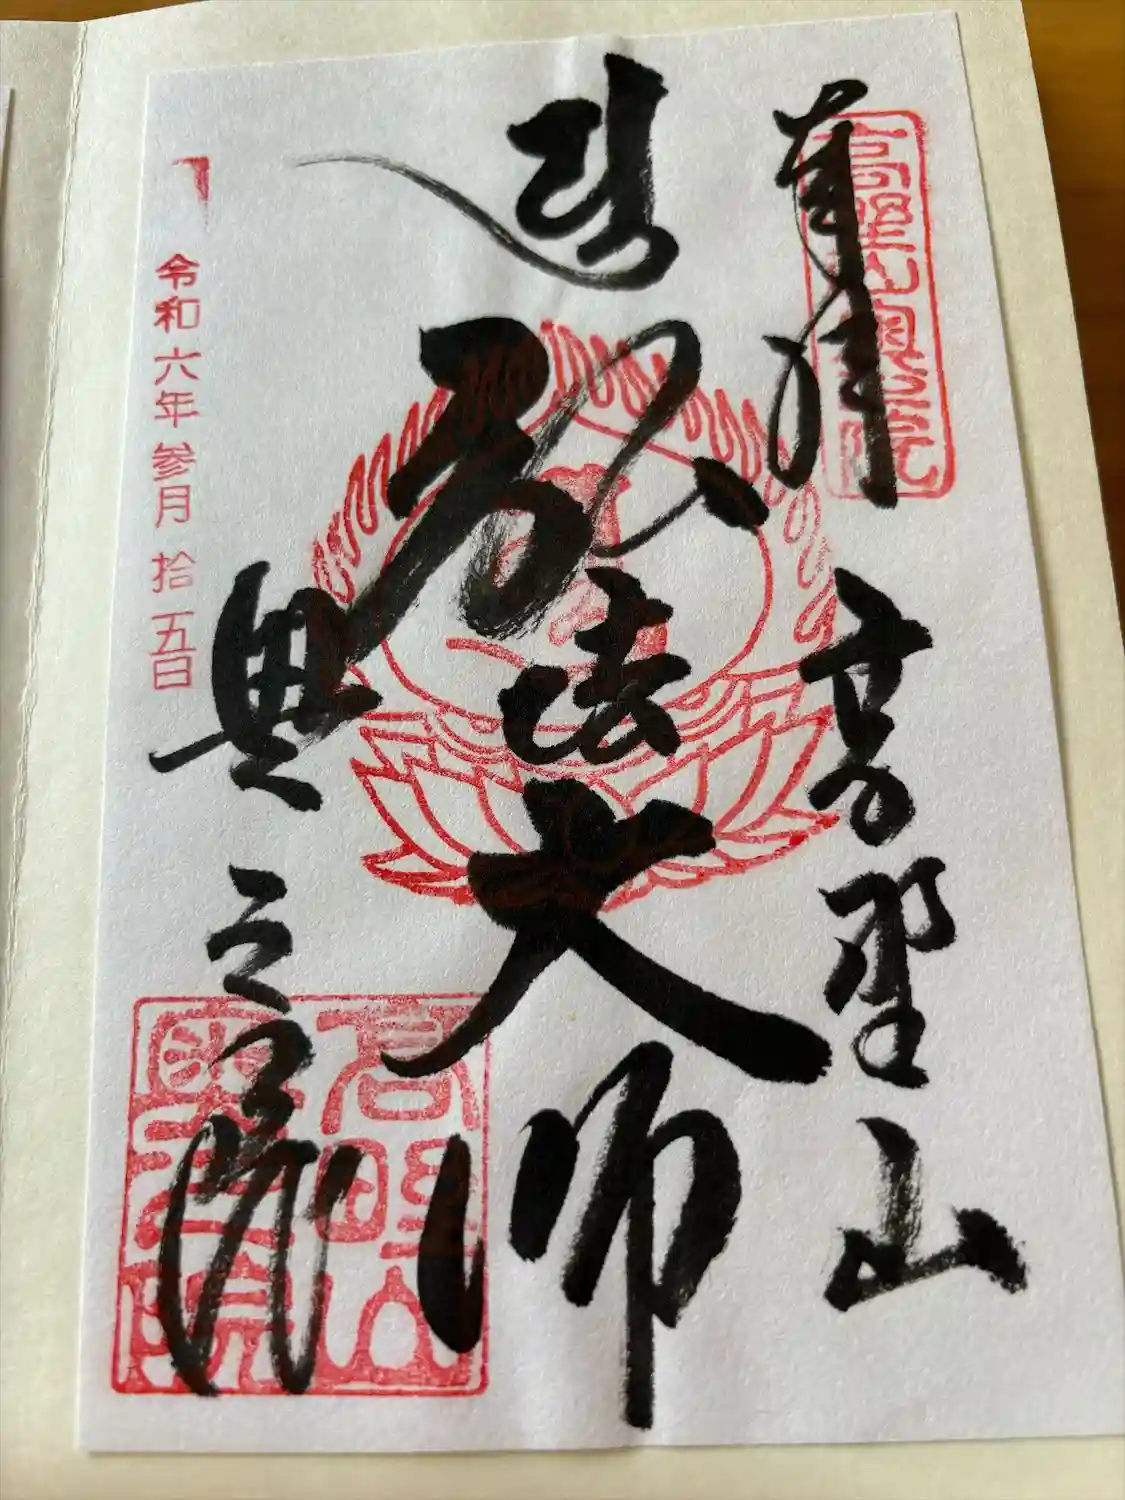 奉拝
高野山
高野山奥之院
弘法大師
奥之院
令和六年参月拾五日
高野山奥之院